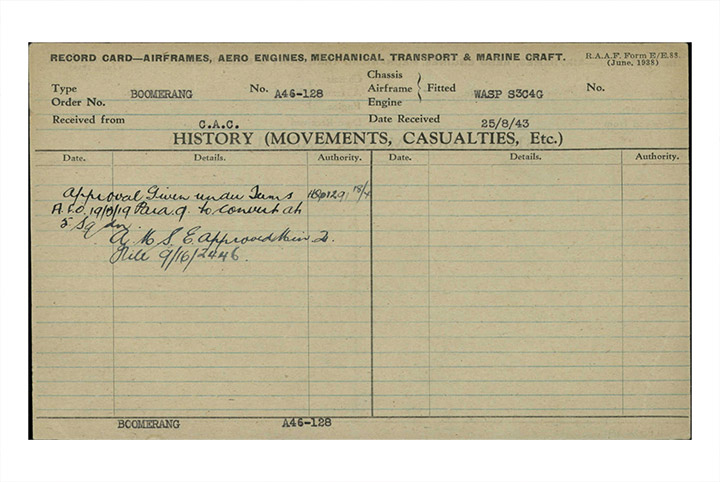 RECORD CARD—AIRFRAMES, AERO ENGINES, MECHANICAL TRANSPORT & MARINE CRAFT.
R.A.A.F. Form E/E.88
(June, 1938)
Type BOOMERANG No. A46-128 Chassis Airframe Engine } Fitted WASP S3C4G No.
Order No.
Received from C.A.C. Date Received 25/8/43
HISTORY (MOVEMENTS, CASUALTIES, Etc.)
Date. Details. Authority. Date. Details. Authority.
Approval Given under Terms
A.F.O. 19/ /19 Para 9. to convert at
5 Sqdn.
A.M.S.E. Approved
File 9/16/2446.
BOOMERANG A46-128